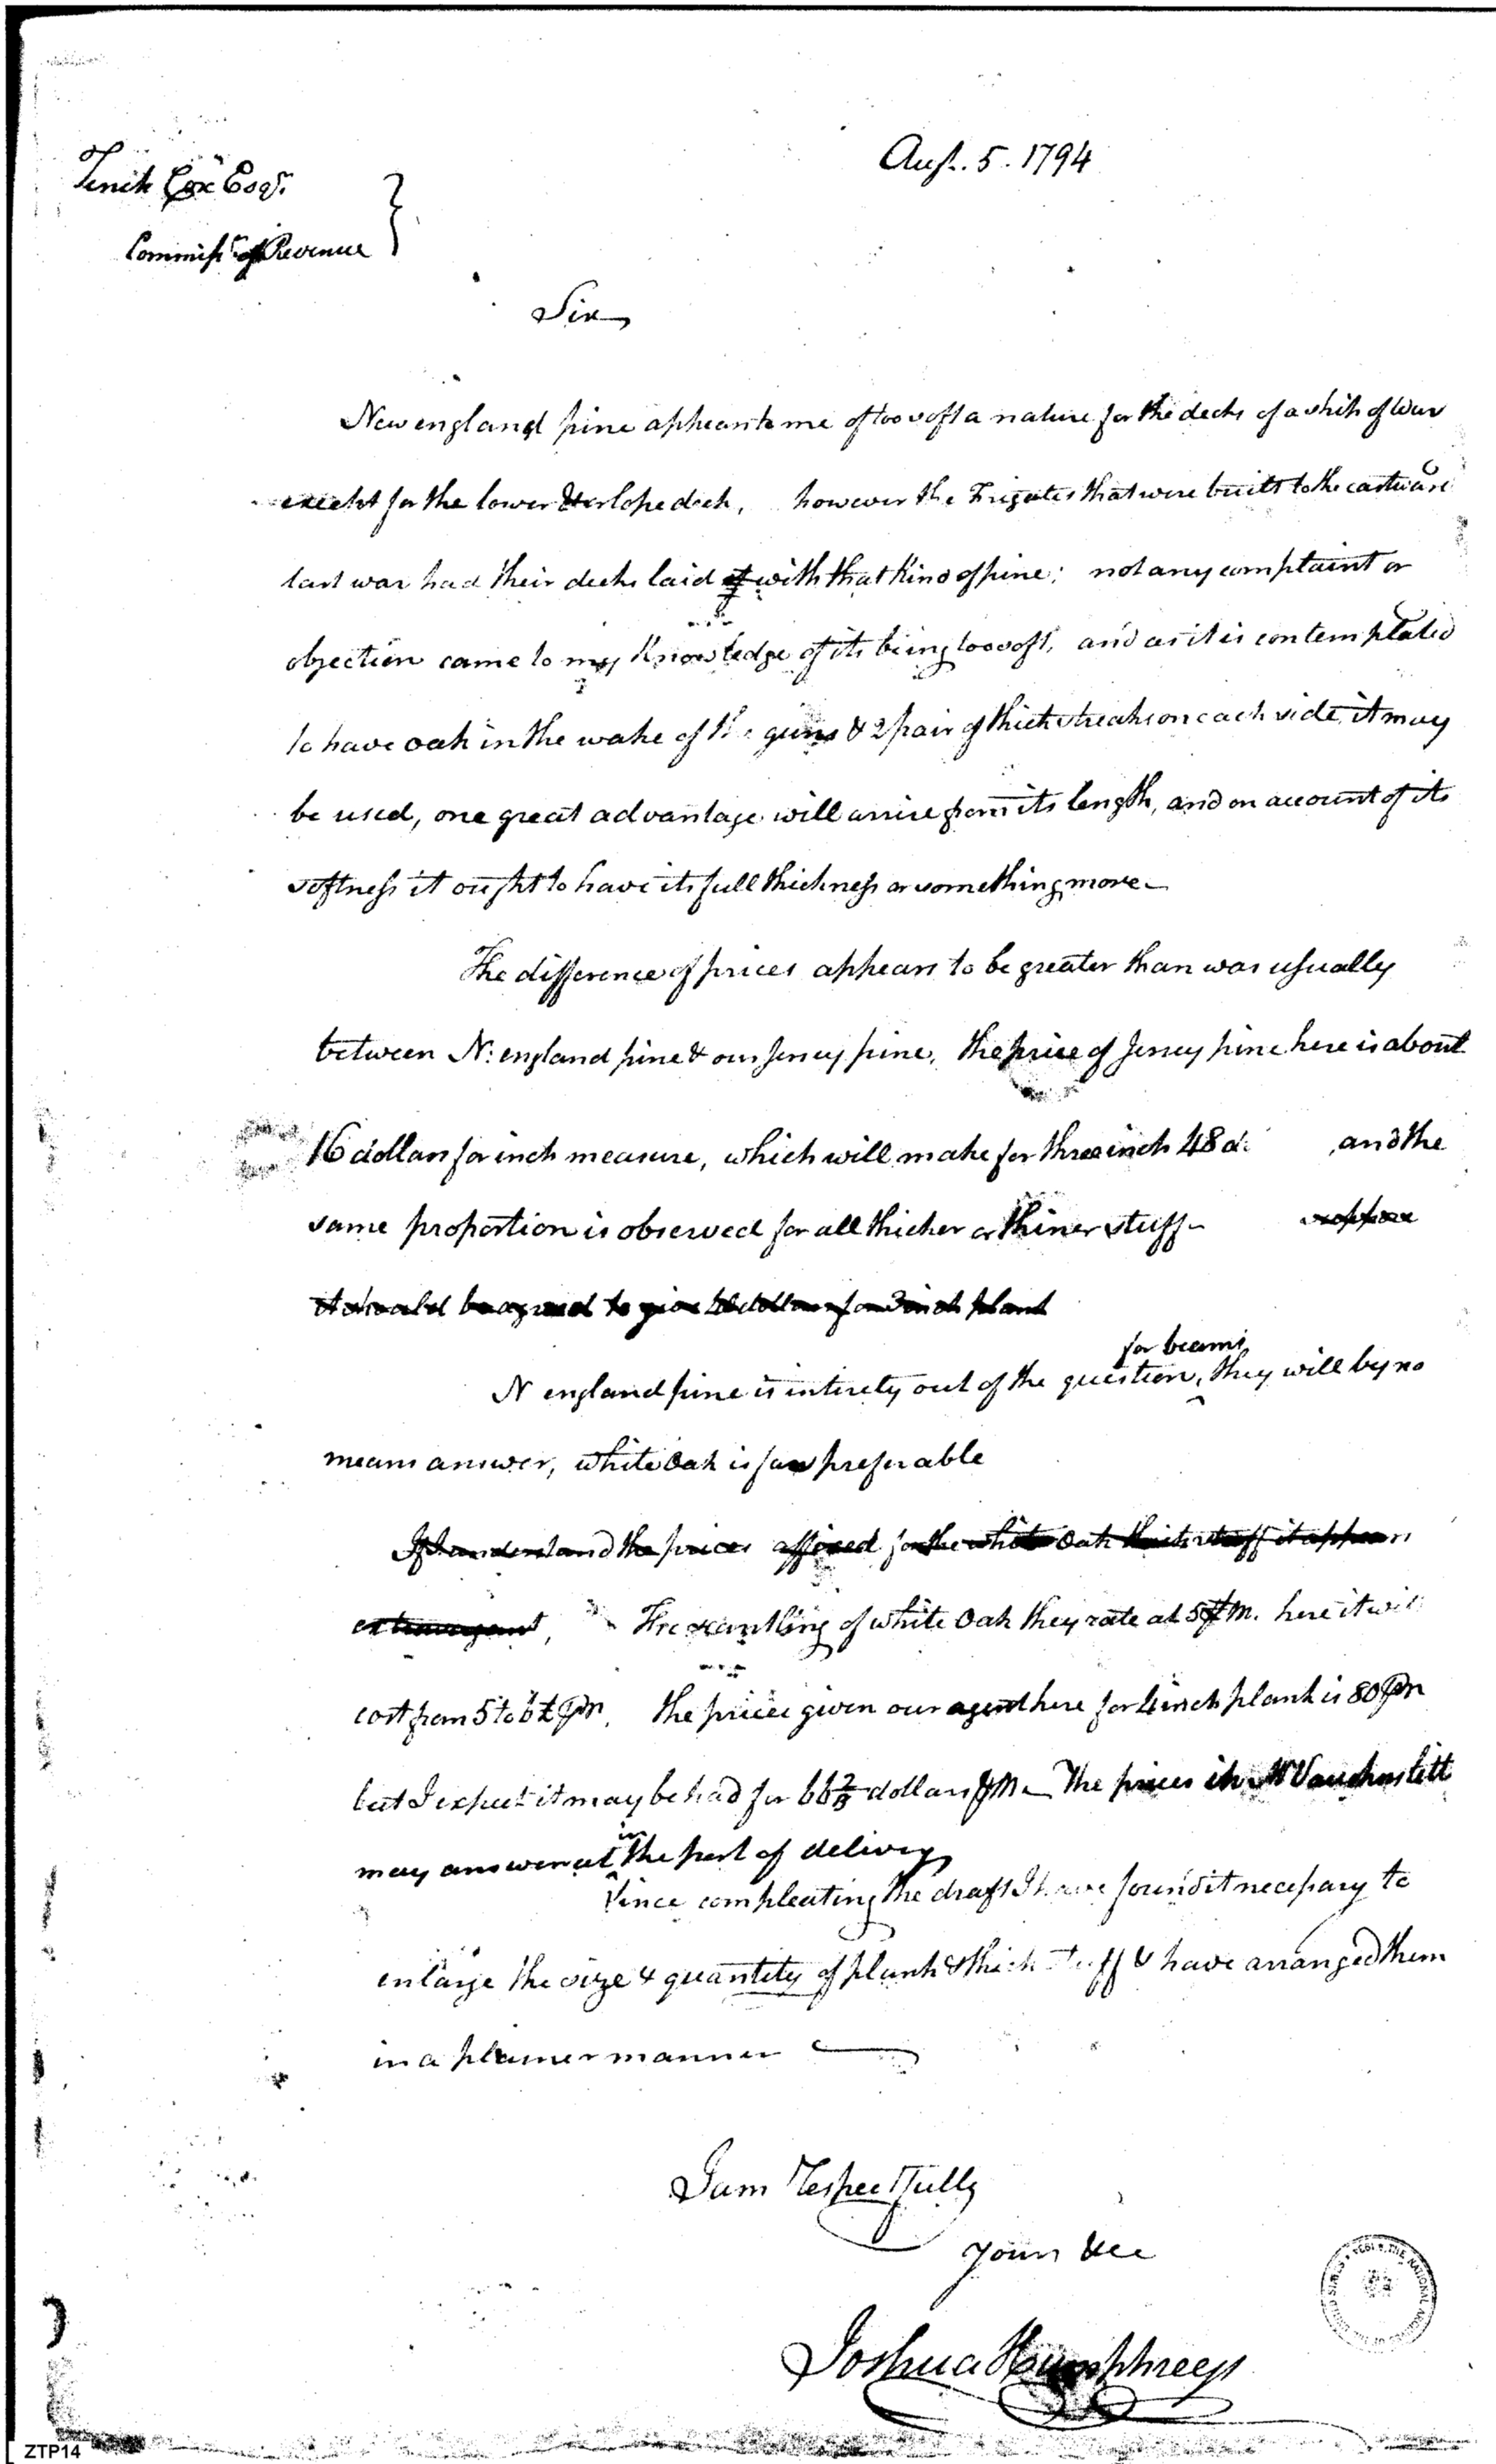 Augt. 5. 1794
Tench Cox Esqr.
Commissr of Revenue
Sir
New england pine appears to me of too soft a nature for the decks of a ship of War
except for the lower & orlope deck, however the Frigates that were built to the eastward
last war had their decks laid of with that kind of pine; not any complaint or
objection came to my Knowledge of its being too soft, and as it is contemplated
to have oak in the wake of the guns & 2 pair of thick streaks on each side, it may
be used, one great advantage will arise from its length, and on account of its
softness it ought to have its full thickness or something more—
The difference of prices appears to be greater than was usually
between N: england pine & our Jersey pine, the price of Jersey pine here is about
16 dollars for inch measure, which will make for three inch 48 d: and the
same proportion is observed for all thicker or thiner stuff— suppose
it should be agreed to give dollars for 3 inch plank
for beams
N england pine is intirely out of the question, they will by no
means answer, white Oak is far preferable
If I understand the prices affixed for the white Oak thick stuff it appears
extravagant, The scantling of white Oak they rate at 5£ M. here it will
cost from 5 to 6£ pr M. The prices given our agent here for 4 inch plank is 80 pr M
but I expect it may be had for 66 2/3 dollars pr M— The prices in Mr Vaughns lett
may answer at in the port of delivery
Since compleating the draft I have found it necessary to
enlarge the size & quantity of plank & thick stuff & have arranged them
in a plainer manner
I am respectfully
yours &cc
Joshua Humphreys
ZTP14